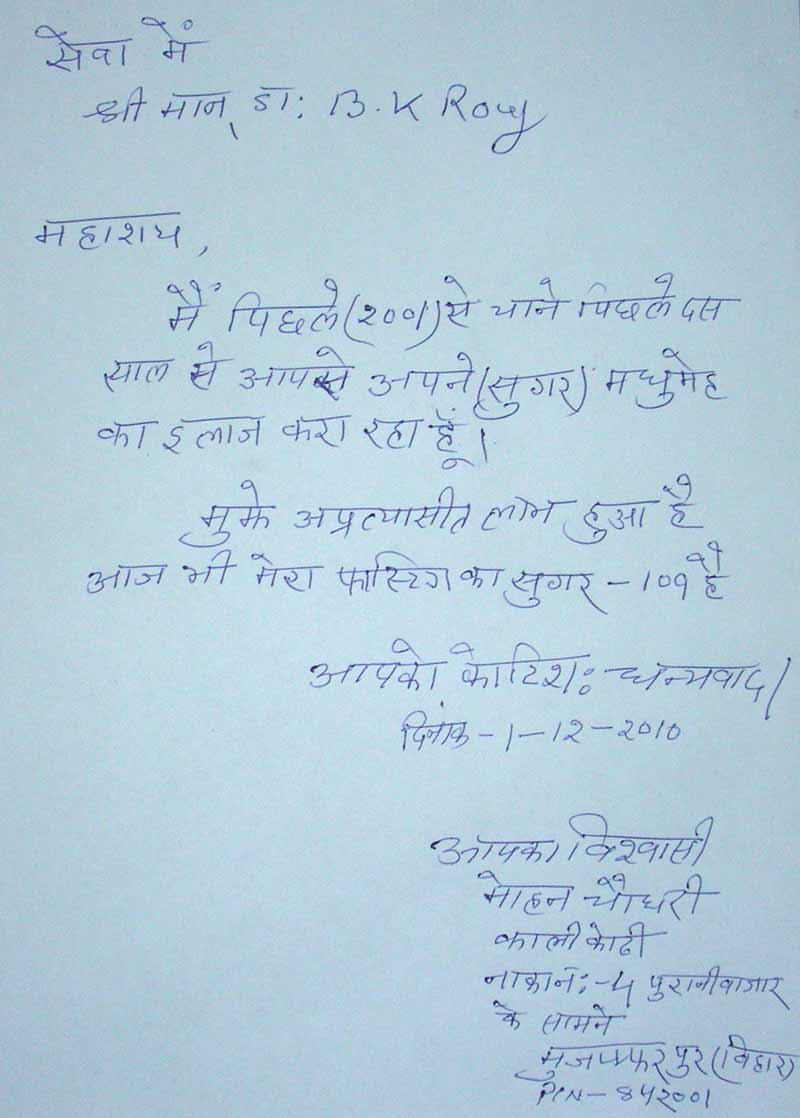 सेवा में
श्री मान् डा: B. K Roy
महाशय,
मैं पिछले (2001) से याने पिछले दस
साल से आपसे अपने (सुगर) मधुमेह
का इलाज करा रहा हूँ।
मुझे अप्रत्यासीत लाभ हुआ है
आज भी मेरा फास्टिंग का सुगर - 109 है
आपको कोटिश: धन्यवाद।
दिनांक - 1-12-2010
आपका विश्वासी
मोहन चौधरी
काली कोठी
नाकानं:- 4 पुरानी बाजार
के सामने
मुजफ्फरपुर (बिहार)
PIN - 842001